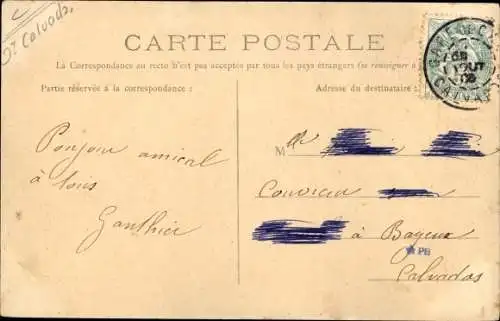 Dt Calvados,
CARTE POSTALE
La Correspondance au recto n'est pas acceptée par tous les pays étrangers (se renseigner à
Partie réservée à la correspondance :
Adresse du destinataire
GARE DE C
AOUT
CALVA
Bonjour amical
à tous
Gauthier
M
Couvreur
à Bayeux
PH
Calvados